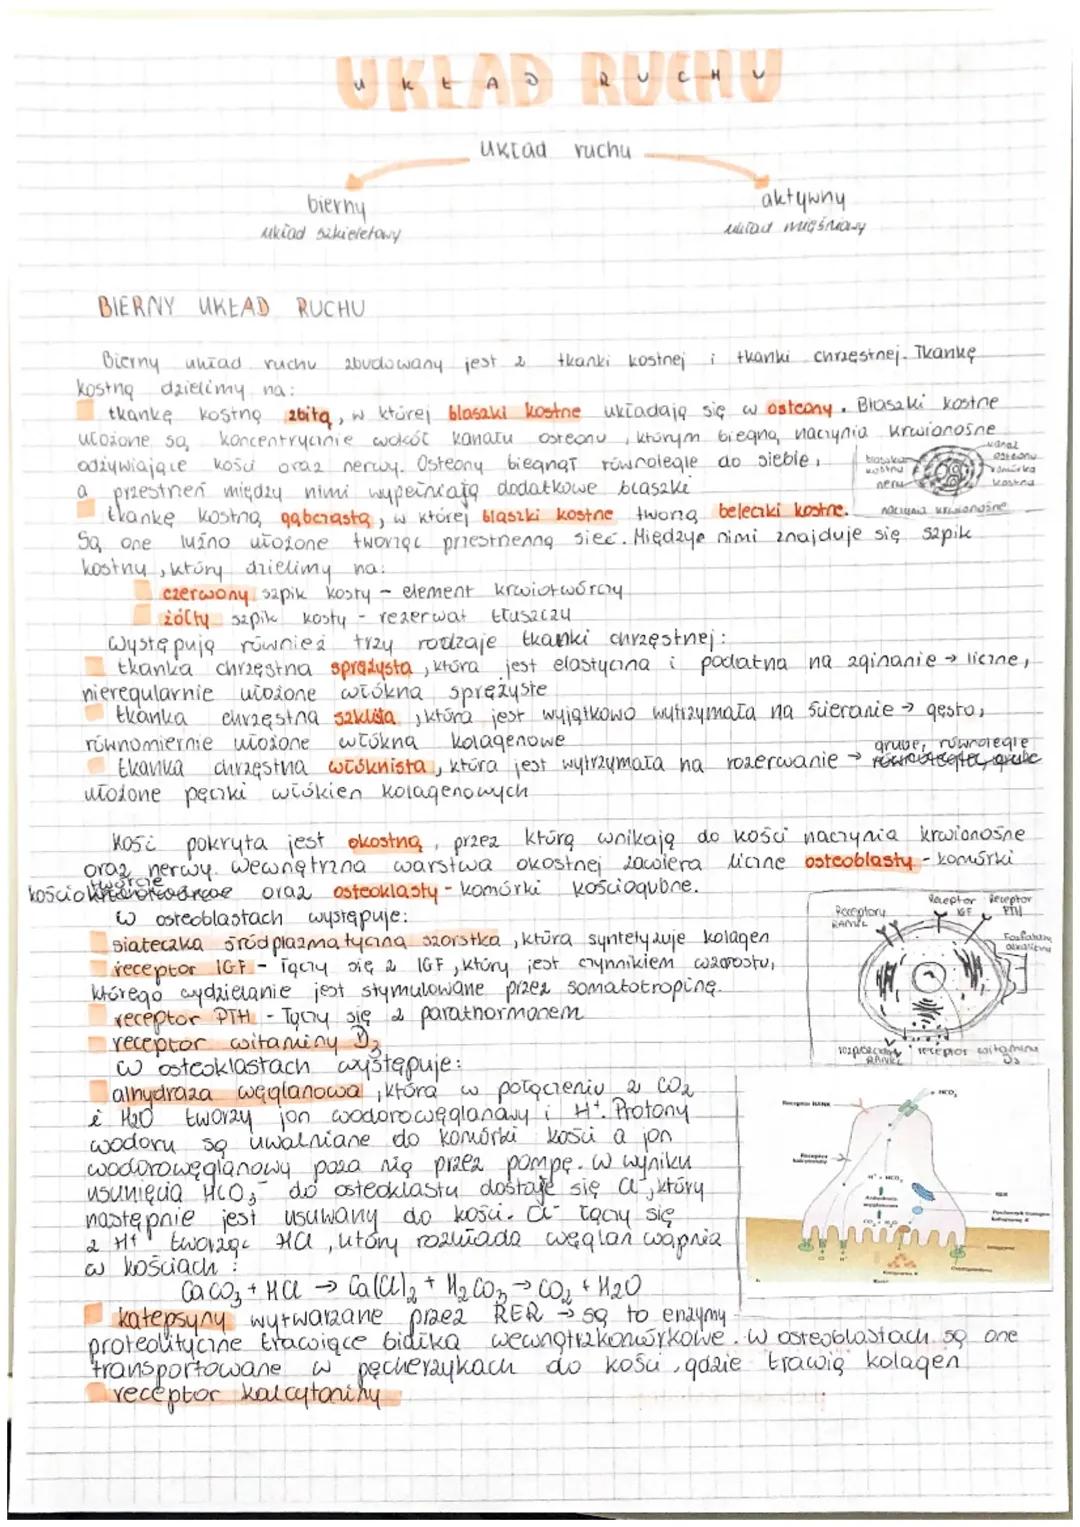 UKŁAD RUCHU
układ ruchu
bierny
układ szkieletowy
aktywny
układ mięśniowy
BIERNY UKŁAD RUCHU
Bierny układ ruchu zbudowany jest z tkanki kostnej i tkanki chrzęstnej. Tkankę
kostną dzielimy na:
tkankę kostną zbitą, w której blaszki kostne układają się w osteony. Blaszki kostne
ułożone są koncentrycznie wokół kanału osteonu, którym biegną naczynia krwionośne
odżywiające kości oraz nerwy. Osteony biegnął równolegle do siebie,
a przestrzeń między nimi wypełniają dodatkowe blaszki
blaszka kostna
nerw
kanał osteonu
komórka kostna
naczynia krwionośne
tkankę kostną gąbczastą, w której blaszki kostne tworzą beleczki kostne.
Są one luźno ułożone tworząc przestrzenną sieć. Międzye nimi znajduje się szpik
kostny, który dzielimy na:
czerwony szpik kosty - element krwiotwórczy
żółty szpik kosty - rezerwat tłuszczu
Występują również trzy rodzaje tkanki chrzęstnej:
tkanka chrzęstna sprężysta, która jest elastyczna i podatna na zginanie → liczne,
nieregularnie ułożone włókna sprężyste
tkanka chrzęstna szklista, która jest wyjątkowo wytrzymała na ścieranie → gęsto,
równomiernie ułożone włókna kolagenowe
tkanka chrzęstna włóknista, która jest wytrzymała na rozerwanie → grube, równoległe
ułożone pęczki włókien kolagenowych
Kość pokryta jest okostną, przez którą wnikają do kości naczynia krwionośne
oraz nerwy. Wewnętrzna warstwa okostnej zawiera liczne osteoblasty - komórki
kościotwórcze oraz osteoklasty - komórki kościogubne.
W osteoblastach występuje:
siateczka śródplazmatyczna szorstka, która syntetyzuje kolagen
receptor IGF - łączy się z IGF, który jest czynnikiem wzrostu,
którego wydzielanie jest stymulowane przez somatotropinę.
receptor PTH - łączy się z parathormonem
receptor witaminy D3
Receptory RANKL
Receptor IGF
Receptor PTH
Fosfataza alkaliczna
receptor witaminy D3
W osteoklastach występuje:
anhydraza węglanowa, która w połączeniu z CO2
i H2O tworzy jon wodorowęglanowy i H+. Protony
wodoru są uwalniane do komórki kości a jon
wodorowęglanowy poza nią przez pompę. W wyniku
usunięcia HCO3- do osteoklastu dostaje się Cl-, który
następnie jest usuwany do kości. Cl- łączy się
z H+ tworząc HCl, który rozkłada węglan wapnia
w kościach:
CaCO3 + HCl → Ca(Cl)2 + H2CO3 → CO2 + H2O
Receptor RANK
HCO3
Receptor kalcytoniny
H+ + HCO3
Anhydraza węglanowa
CO2 + H2O
RER
katepsyny wytwarzane przez RER → są to enzymy
proteolityczne trawiące białka wewnątrzkomórkowe. W osteoblastach są one
transportowane w pęcherzykach do kości, gdzie trawią kolagen
receptor kalcytoniny